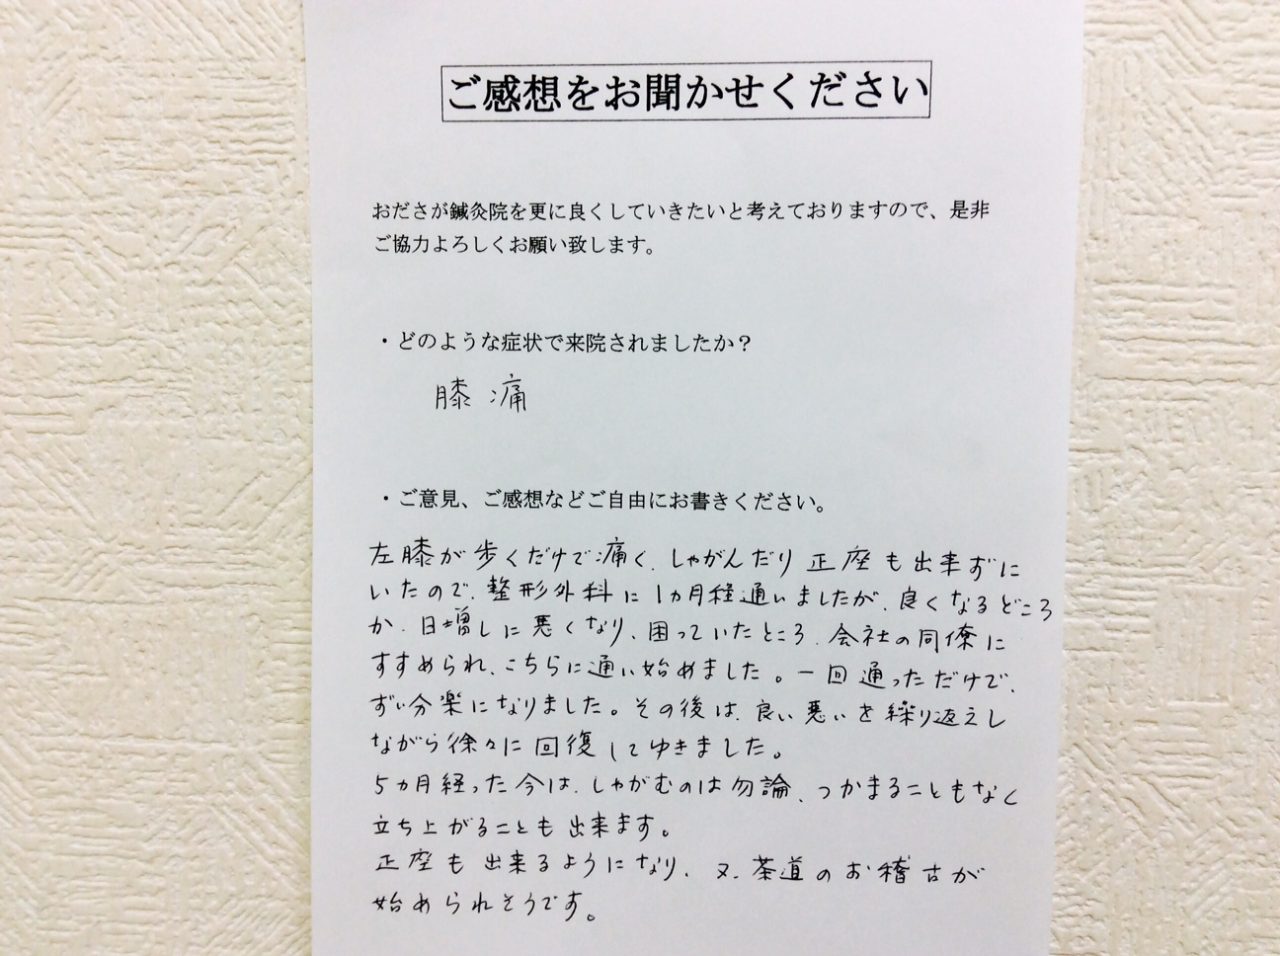 ご感想をお聞かせください
おださが鍼灸院を更に良くしていきたいと考えておりますので、是非
ご協力よろしくお願い致します。
・どのような症状で来院されましたか？
膝痛
・ご意見、ご感想などご自由にお書きください。
左膝が歩くだけで痛く、しゃがんだり正座も出来ずに
いたので、整形外科に1ヵ月程通いましたが、良くなるどころ
か、日増しに悪くなり、困っていたところ、会社の同僚に
すすめられ、こちらに通い始めました。一回通っただけで、
ずい分楽になりました。その後は、良い悪いを繰り返えし
ながら徐々に回復してゆきました。
5ヵ月経った今は、しゃがむのは勿論、つかまることもなく
立ち上がることも出来ます。
正座も出来るようになり、又、茶道のお稽古が
始められそうです。